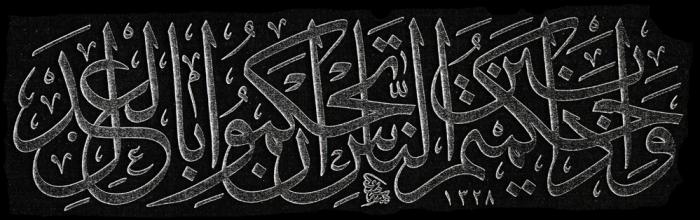 وإذا حكمتم بين الناس أن تحكموا بالعدل
١٣٢٨